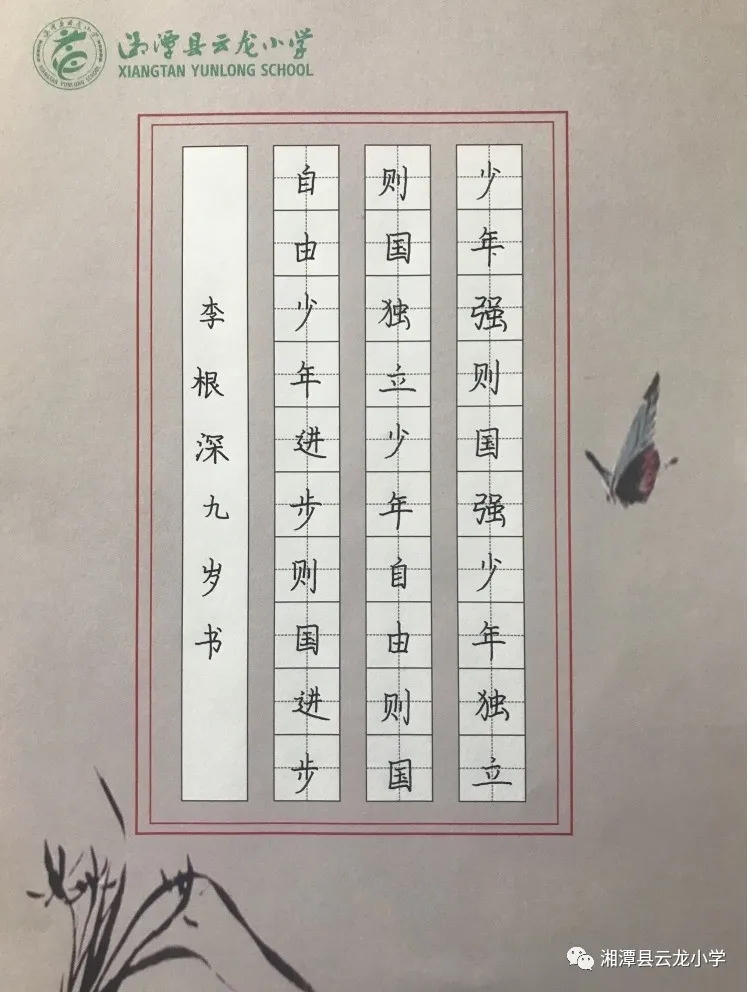 湘潭县云龙小学
XIANGTAN YUNLONG SCHOOL
少年强则国强少年独立
则国独立少年自由则国
自由少年进步则国进步
李根深九岁书
湘潭县云龙小学